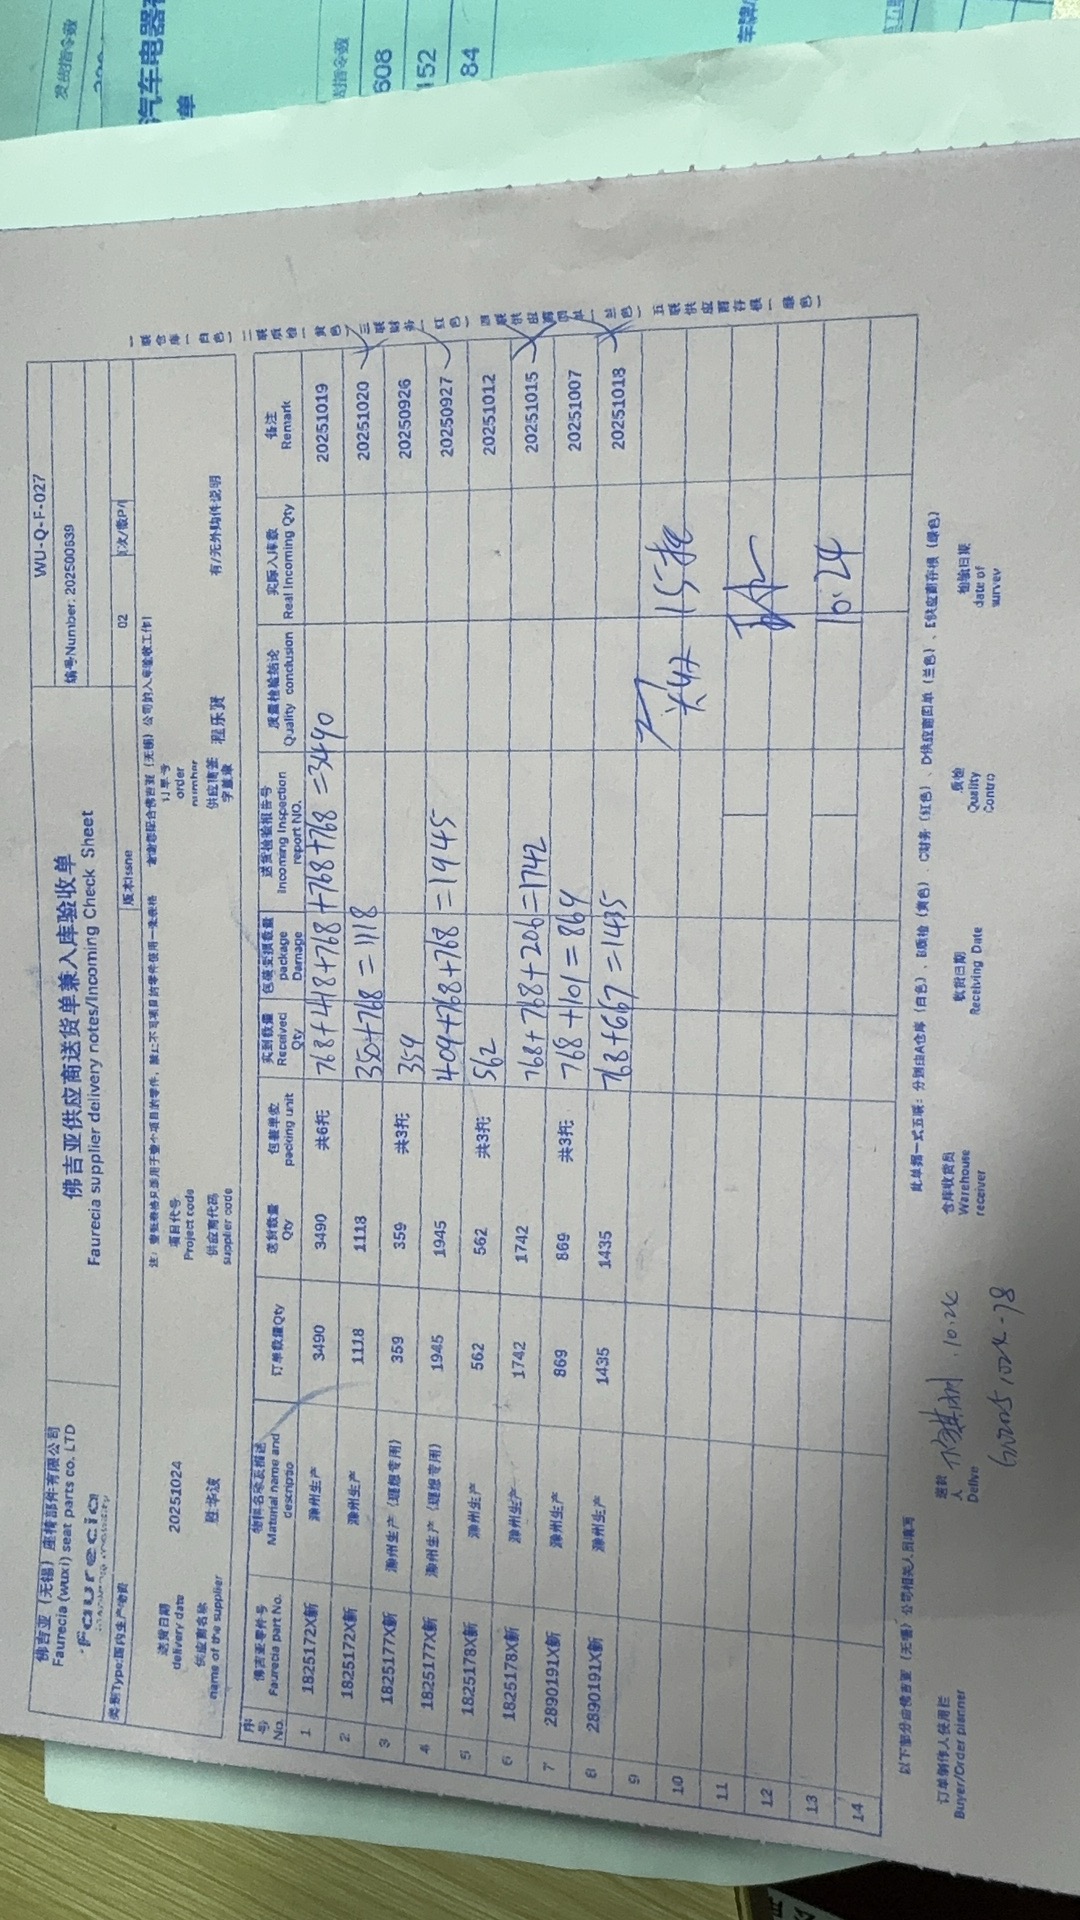 佛吉亚（无锡）座椅部件有限公司
Faurecia (wuxi) seat parts co. LTD
faurecia
佛吉亚供应商送货单兼入库验收单
Faurecia supplier delivery notes/Incoming Check Sheet
WU-Q-F-027
编号Number: 202500639
类别Type:国内生产物资
版本Issue 02
注：
送货日期 20251024
delivery date
项目代号
Project code
订单号
order
number
供应商名称
name of the supplier
供应商代码
supplier code
供应商签字盖章 程乐贤
有/无外购件说明
序号 No. 佛吉亚零件号 Faurecia part No. 物料名称及描述 Material name and descriptio 订单数量Qty 送货数量 Qty 包装单位 packing unit 实到数量 Received Qty 包装受损数量 package Damage 送货检验报告号 Incoming Inspection report NO. 质量检验结论 Quality conclusion 实际入库数 Real Incoming Qty 备注 Remark
1 1825172X新 滁州生产 3490 3490 共6托 768+418+768+768+768=3490 20251019
2 1825172X新 滁州生产 1118 1118 350+768=1118 20251020
3 1825177X新 滁州生产（理想专用） 359 359 共3托 359 20250926
4 1825177X新 滁州生产（理想专用） 1945 1945 409+768+768=1945 20250927
5 1825178X新 滁州生产 562 562 共3托 562 20251012
6 1825178X新 滁州生产 1742 1742 768+768+206=1742 20251015
7 2890191X新 滁州生产 869 869 共3托 768+101=869 20251007
8 2890191X新 滁州生产 1435 1435 768+667=1435 20251018
9
10 15托
11
12
13 10.24
14
一联仓库（白色）二联质检（黄色）三联财务（红色）四联供应商回单（兰色）五联供应商存根（绿色）
以下部分由佛吉亚（无锡）公司相关人员填写
此单据一式五联：分别由A仓库（白色）、B质检（黄色）、C财务（红色）、D供应商回单（兰色）、E供应商存根（绿色）
订单制作人使用栏
Buyer/Order planner
送货人
Delive
10.24
仓库收货员
Warehouse
receiver
收货日期
Receiving Date
质检
Quality
Contro
检验日期
date of
survey
发货指令数
汽车电器
单
608
152
84
车牌